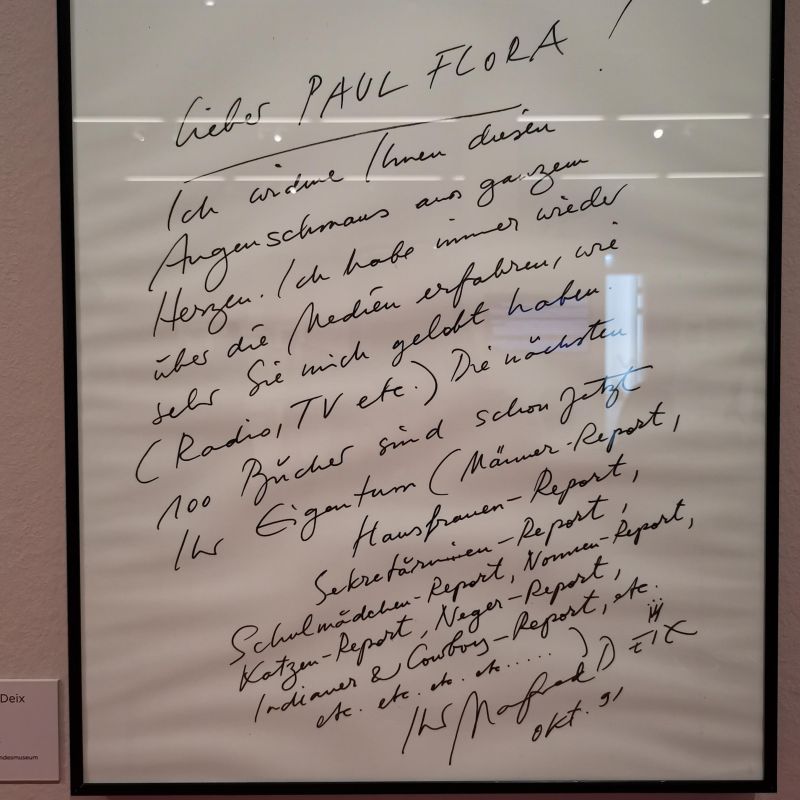 Lieber PAUL FLORA!
Ich widme Ihnen diesen
Augenschmaus aus ganzem
Herzen. Ich habe immer wieder
über die Medien erfahren, wie
sehr Sie mich gelobt haben.
(Radio, TV etc.) Die nächsten
100 Bücher sind schon jetzt
Ihr Eigentum (Männer-Report,
Hausfrauen-Report,
Sekretärinnen-Report,
Schulmädchen-Report, Nonnen-Report,
Katzen-Report, Neger-Report,
Indianer & Cowboy-Report, etc.
etc. etc. etc. etc.....)
Ihr Manfred DEIX
Okt. 91
Deix
ndesmuseum